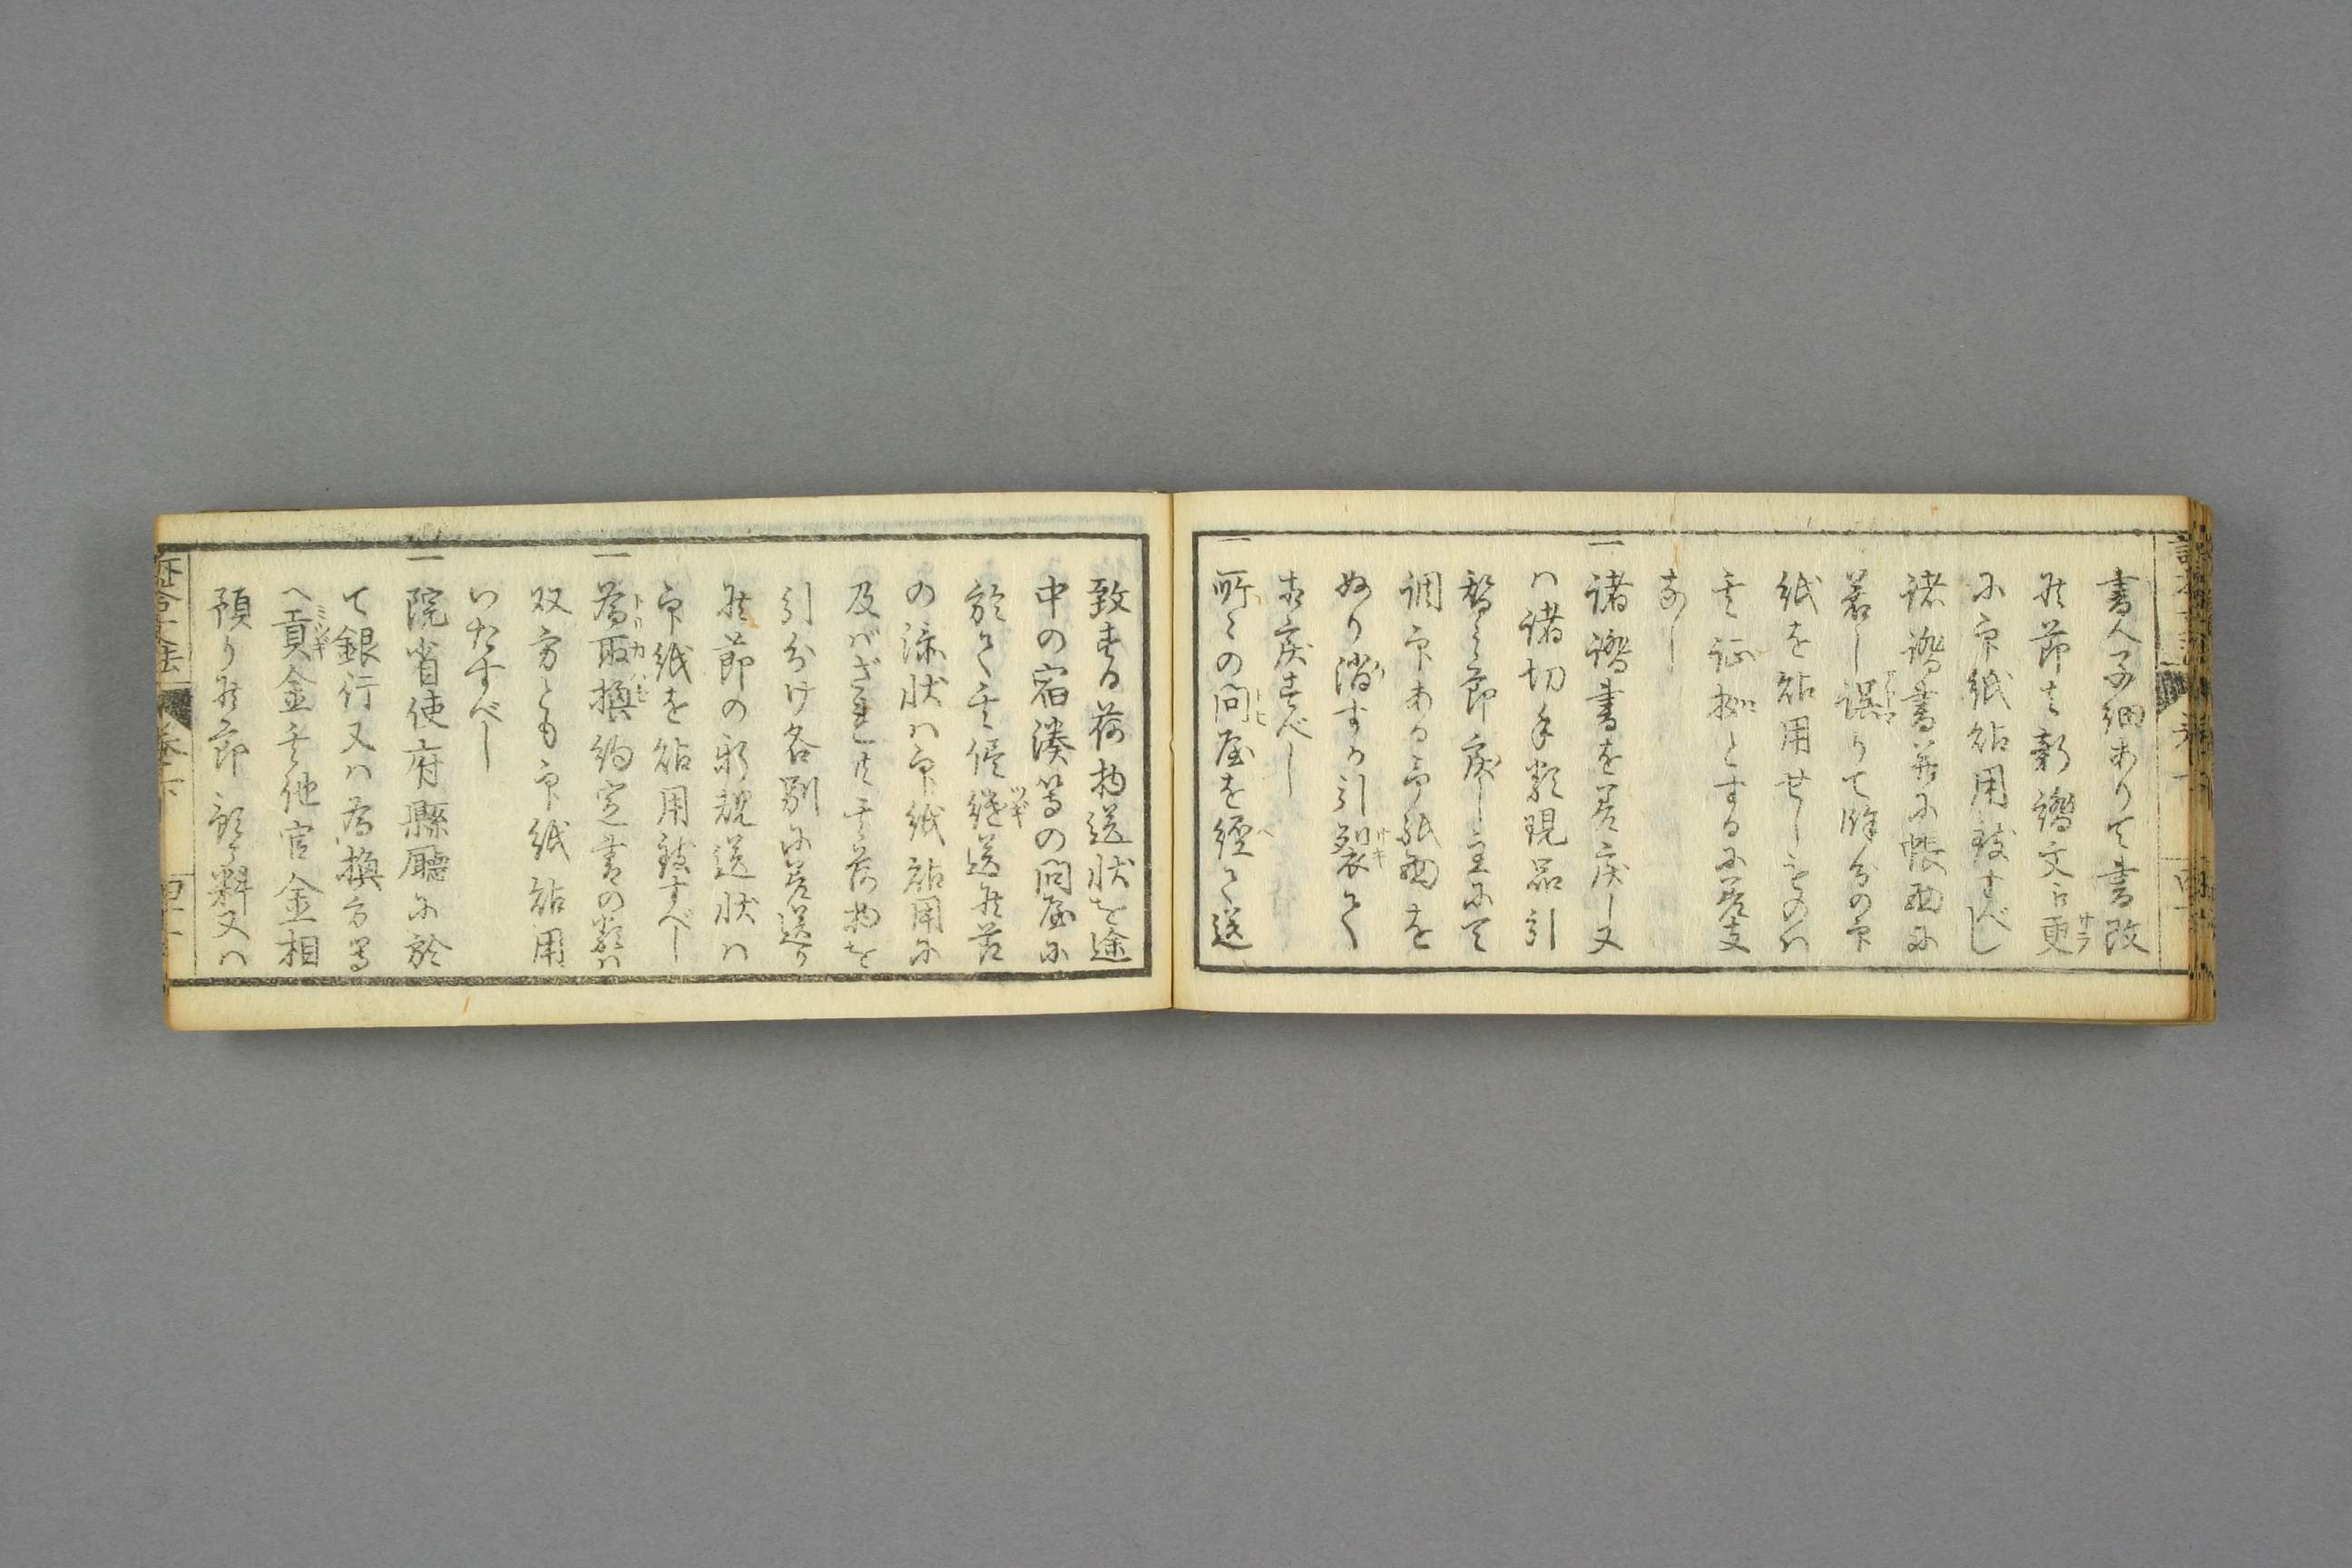 書人子細ありて書改
候節は新證文に更
に印紙貼用致すべし
諸證書并に帳面に
若し誤りて除分の印
紙を貼用せしものハ
其証拠とするに差支
なし
一諸證書を差戻し又
ハ諸切手類現品引
替之節戻し主にて
調印ある印紙面を
ぬり消すか引裂きて
差戻すべし
一所々の問屋を経て送
致する荷物送状を途
中の宿湊等の問屋に
於て其侭継送候節
の添状ハ印紙貼用に
及バざれ共其荷物を
引分け各別に差送り
候節の新規送状ハ
印紙を貼用致すべし
一為取換約定書の類ハ
双方とも印紙貼用
いたすべし
一院省使府縣廳に於
て銀行又ハ為換方等
へ貢金其他官金相
預り候節預り料又ハ